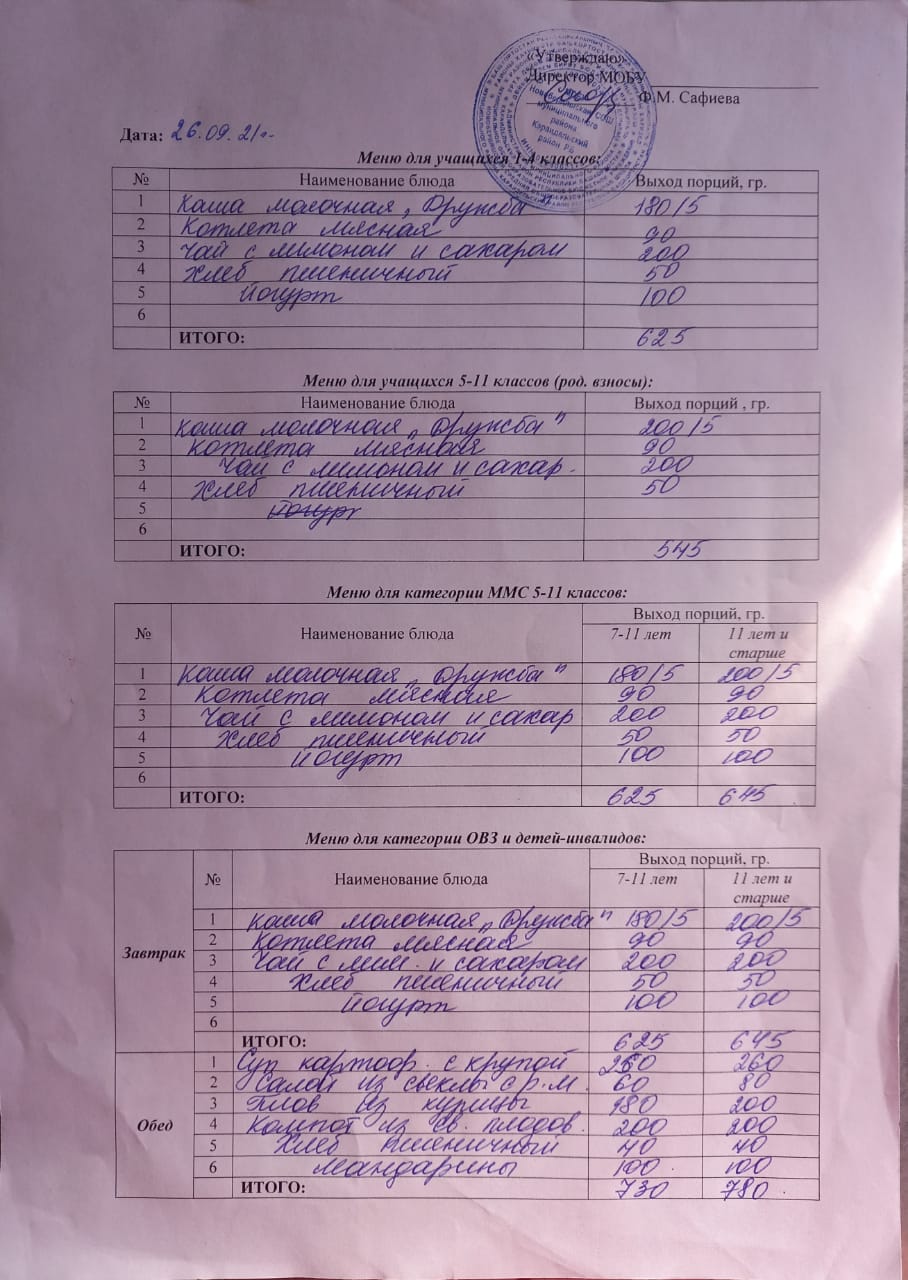 «Утверждаю»
Директор МОБУ
Ф.М. Сафиева
Новобалтачевская СОШ
муниципального
района
Караидельский
район РБ
Дата: 26.09.21г.
Меню для учащихся 1-4 классов:
№ Наименование блюда Выход порций, гр.
1 Каша молочная „Дружба" 180/5
2 Котлета мясная 90
3 Чай с лимоном и сахаром 200
4 Хлеб пшеничный 50
5 Йогурт 100
6
ИТОГО: 625
Меню для учащихся 5-11 классов (род. взносы):
№ Наименование блюда Выход порций , гр.
1 Каша молочная „Дружба" 200/5
2 Котлета мясная 90
3 Чай с лимоном и сахар. 200
4 Хлеб пшеничный 50
5 Йогурт
6
ИТОГО: 545
Меню для категории ММС 5-11 классов:
№ Наименование блюда Выход порций, гр.
7-11 лет 11 лет и
старше
1 Каша молочная „Дружба" 180/5 200/5
2 Котлета мясная 90 90
3 Чай с лимоном и сахар 200 200
4 Хлеб пшеничный 50 50
5 Йогурт 100 100
6
ИТОГО: 625 645
Меню для категории ОВЗ и детей-инвалидов:
№ Наименование блюда Выход порций, гр.
7-11 лет 11 лет и
старше
Завтрак
1 Каша молочная „Дружба" 180/5 200/5
2 Котлета мясная 90 90
3 Чай с лим. и сахаром 200 200
4 Хлеб пшеничный 50 50
5 Йогурт 100 100
6
ИТОГО: 625 645
Обед
1 Суп картоф. с крупой 260 260
2 Салат из свеклы с р.м. 60 80
3 Плов из курицы 180 200
4 Компот из св. плодов. 200 200
5 Хлеб пшеничный 40 40
6 Мандарины 100 100
ИТОГО: 730 780